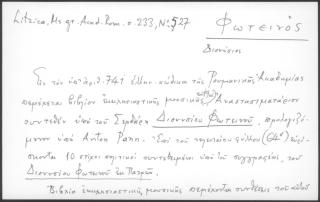 Litzica, Ms gr. Acad. Rom. σ. 233, Nº 527
Φωτεινὸς
Διονύσιος
Εἰς τὸν ὑπ' ἀρ. 741 ἑλλην. κώδικα τῆς Ρουμανικῆς Ἀκαδημίας
περιέχεται βιβλίον ἐκκλησιαστικῆς μουσικῆς Ἀναστασιματάριον
συντεθὲν ὑπὸ τοῦ Σερδάρη Διονυσίου Φωτεινοῦ, προλογιζό-
μενον ὑπὸ Anton Pann. Ἐπὶ τοῦ τελευταίου φύλλου (64ᵛ) εὑρί-
σκονται 10 στίχοι συντεθειμένοι ὑπὸ τοῦ συγγραφέως, τοῦ
Διονυσίου Φωτεινοῦ ἐκ Πατρῶν.
Βιβλία ἐκκλησιαστικῆς μουσικῆς περιέχοντα συνθέσεις τοῦ αὐτοῦ